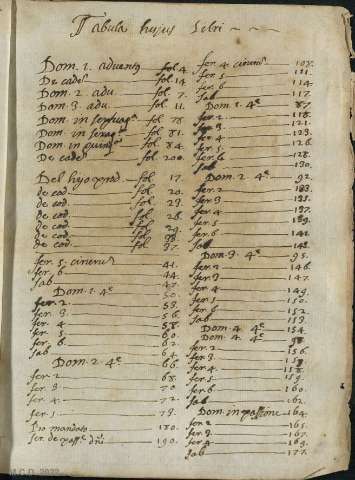 Tabula hujus Libri
Dom. 1. adventus fol. 4.
De eadē fol. 14.
Dom. 2. adv. fol. 7.
Dom. 3. adv. fol. 11.
Dom. in septuag. fol. 78
Dom. in sexag. fol. 81.
Dom. in quinq. fol. 84.
De eadē fol. 200.
Del hijo prod. fol. 17.
de ead. fol. 20.
de ead. fol. 23.
de ead. fol. 26.
de ead. fol. 29.
de ead. fol.
de ead. fol. 37.
fer. 5. cinerus 41.
fer. 6. 44.
sab. 47.
Dom. 1. 4ᵉ 50.
fer. 2. 53.
fer. 3. 56.
fer. 4. 58.
fer. 5. 60.
fer. 6. 62.
sab. 64.
Dom. 2. 4ᵉ 66.
fer. 2. 68.
fer. 3. 70
fer. 4. 72.
fer. 5. 73.
Do mandato 180.
ser. de pass.ᵉ dñi 190.
fer. 4. cinerus 107.
fer. 5. 111.
fer. 6. 114.
sab. 117.
Dom. 1. 4ᵉ 87.
fer. 2. 118.
fer. 3. 121.
fer. 4. 123.
fer. 5. 126.
fer. 6. 128.
sab. 130.
Dom. 2. 4ᵉ 92.
fer. 2. 133.
fer. 3. 135.
fer. 4. 137.
fer. 5. 139.
fer. 6. 141.
sab. 143.
Dom. 3. 4ᵉ 95.
fer. 2. 146.
fer. 3. 147.
fer. 4. 149.
fer. 5. 150.
fer. 6. 152.
sab. 153.
Dom. 4. 4ᵉ 154.
Dom. 4. 4ᵉ 98.
fer. 2. 155.
fer. 3. 156.
fer. 4. 158.
fer. 5. 159.
fer. 6. 160.
sab. 162.
Dom. in passione 164.
fer. 2. 165.
fer. 3. 167.
fer. 4. 169.
sab. 177.
M.C.D. 2022